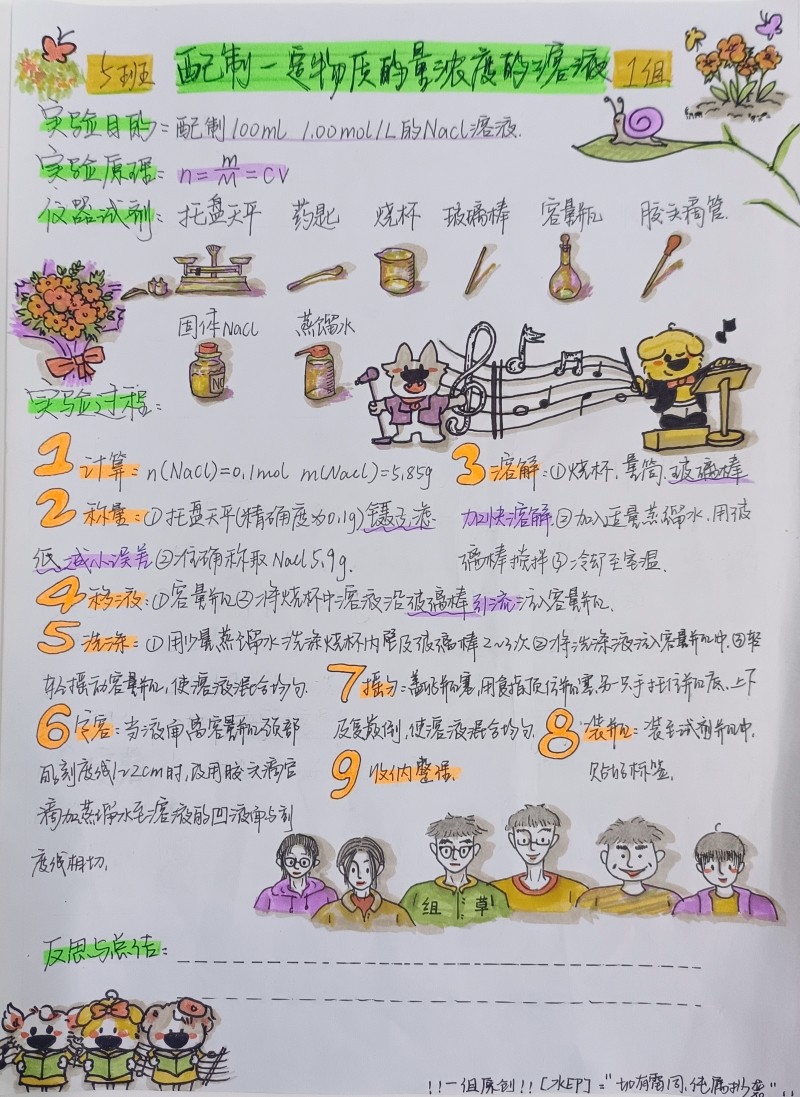 5班 配制一定物质的量浓度的溶液 1组
实验目的:配制100ml 1.00mol/L的Nacl溶液.
实验原理:n=m/M=CV
仪器试剂:托盘天平 药匙 烧杯 玻璃棒 容量瓶 胶头滴管.
固体Nacl 蒸馏水
NC
实验过程:
1 计算:n(Nacl)=0.1mol m(Nacl)=5.85g
2 称量:①托盘天平(精确度为0.1g)镊子,滤
纸 减小误差 ②准确称取Nacl 5.9g.
3 溶解:①烧杯.量筒.玻璃棒
加快溶解.②加入适量蒸馏水.用玻
璃棒搅拌③冷却至室温.
4 移液:①容量瓶②将烧杯中溶液沿玻璃棒引流注入容量瓶.
5 洗涤:①用少量蒸馏水洗涤烧杯内壁及玻璃棒2~3次②将洗涤液注入容量瓶中.③轻
轻摇动容量瓶,使溶液混合均匀.
6 定容:当液面离容量瓶颈部
的刻度线1~2cm时,改用胶头滴管
滴加蒸馏水至溶液的凹液面与刻
度线相切.
7 摇匀:盖好瓶塞,用食指顶住瓶塞,另一只手托住瓶底.上下
反复颠倒,使溶液混合均匀.
8 装瓶:装至试剂瓶中.
贴好标签.
9 收纳整理.
组 草
反思与总结:
!!一组原创!![水印]:"如有雷同,纯属抄袭"!!